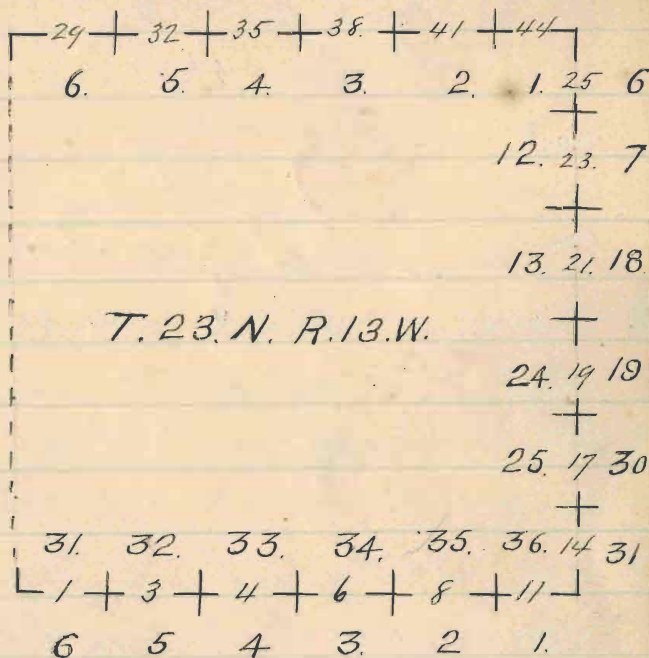 29 32 35 38. 41 44
6. 5. 4. 3. 2. 1. 25 6
12. 23. 7
13. 21. 18
T. 23. N. R. 13. W.
24. 19 19
25. 17 30
31. 32. 33. 34. 35. 36. 14 31
1 3 4 6 8 11
6 5 4 3. 2 1.